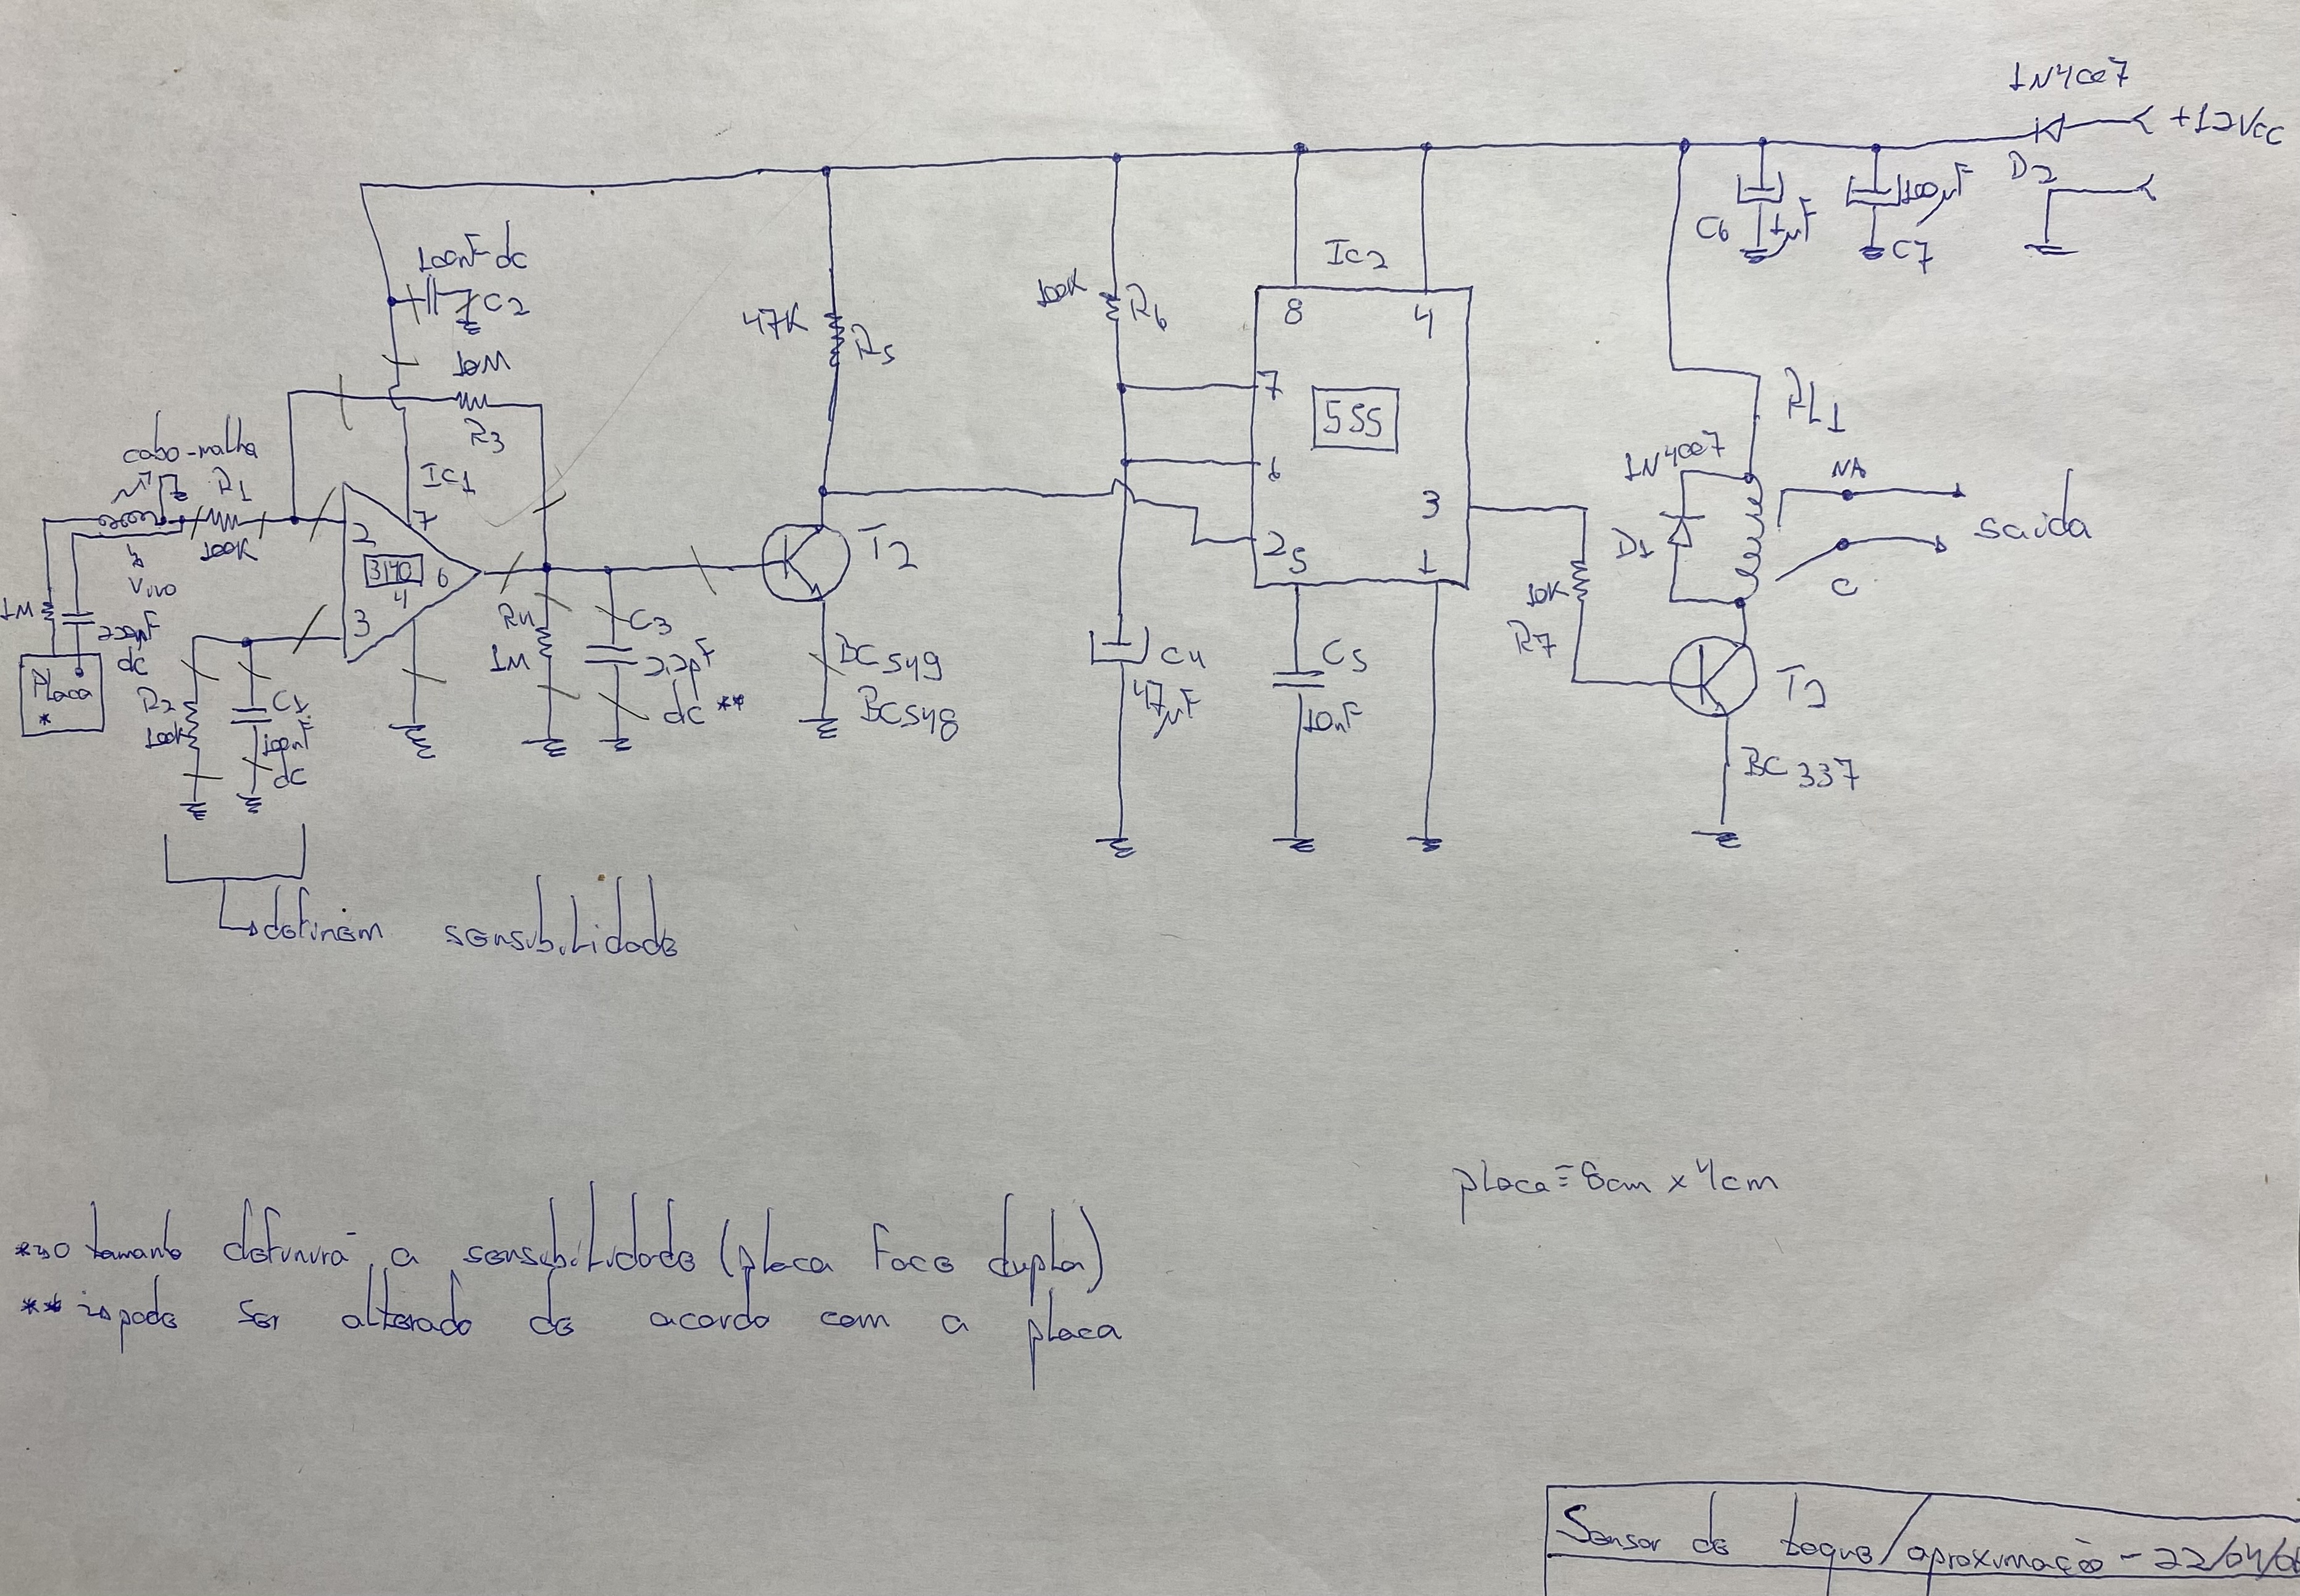 1N4007
+12Vcc
D2
100nF dc
C2
C6
1µF
100µF
C7
Ic2
8
4
47K
R5
100K
R6
10M
R3
cabo-malha
R1
100K
IC1
7
2
3140
6
4
3
7
6
555
3
2
5
1
RL1
1N4007
D1
NA
C
saida
T2
1M
vivo
220pF
dc
Placa
*
R2
100K
C1
100nF
dc
R4
1M
C3
2,2pF
dc **
BC549
BC548
C4
47µF
C5
10nF
10K
R7
T2
BC337
definem sensibilidade
placa = 8cm x 4cm
* → o tamanho definirá a sensibilidade (placa face dupla)
** → pode ser alterado de acordo com a placa
Sensor de toque/aproximação - 22/04/